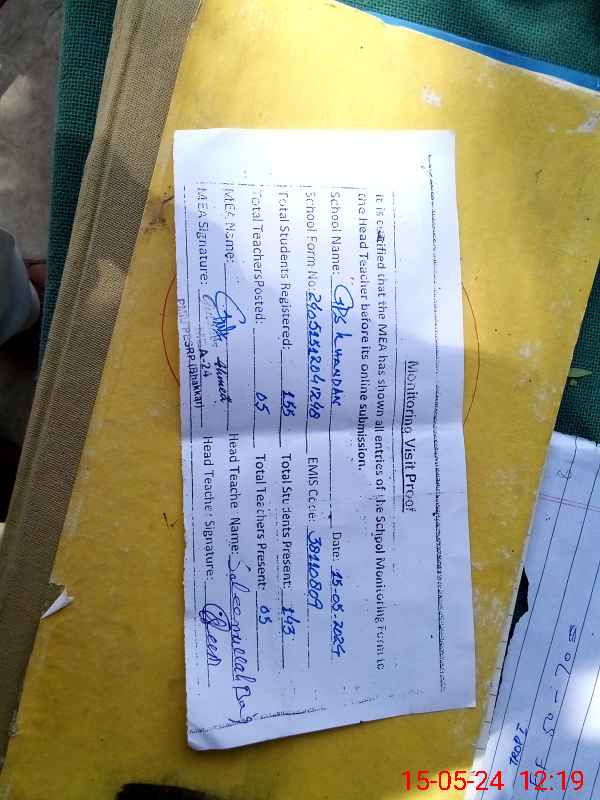 Monitoring Visit Proof
It is certified that the MEA has shown all entries of the School Monitoring Form to
the Head Teacher before its online submission.
School Name: GPS Khandan Date: 15-05-2024
School Form No: EMIS Code: 38110809
Total Students Registered: 155 Total Students Present: 143
Total Teachers Posted: 05 Total Teachers Present: 05
MEA Name: Ahmed Head Teacher Name: Saleemullah
MEA Signature: Head Teacher Signature:
MEA-24
(Bhakkar)
15-05-24 12:19